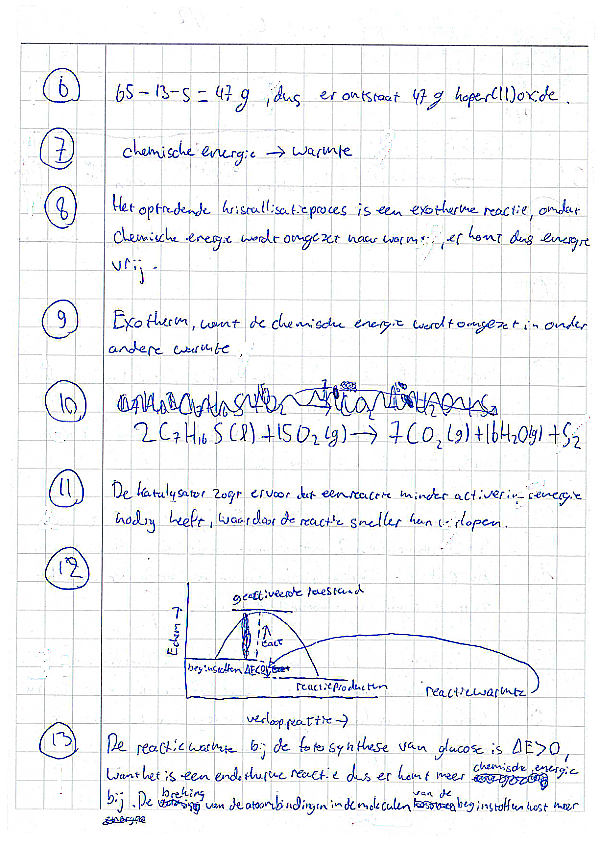 6 65 - 13 - 5 = 47 g , dus er ontstaat 47 g koper(II)oxide.
7 chemische energie → warmte
8 Het optredende kristallisatieproces is een exotherme reactie, omdat
chemische energie wordt omgezet naar warmte, er komt dus energie
vrij.
9 Exotherm, want de chemische energie wordt omgezet in onder
andere warmte.
10
2 C7H16S(l) + 15 O2(g) → 7 CO2(g) + 16 H2O(g) + S2
11 De katalysator zorgt ervoor dat een reactie minder activeringsenergie
nodig heeft, waardoor de reactie sneller kan verlopen.
12
geactiveerde toestand
Echem →
Eact
beginstoffen ΔE<0
reactieproducten
reactiewarmte
verloop reactie →
13 De reactiewarmte bij de fotosynthese van glucose is ΔE>0,
want het is een endotherme reactie dus er komt meer chemische energie
bij. De breking van de atoombindingen in de moleculen van de beginstoffen kost meer
energie